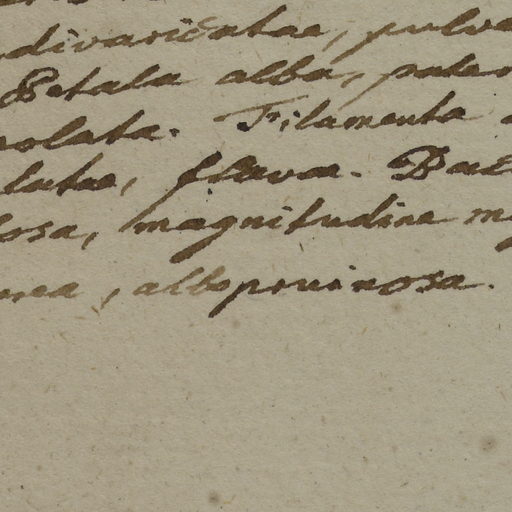 divaricatae, pulve
Petala alba, paten
eolata. Filamenta
latae, flavae. Bac
losa, magnitudine m
nea, albopruinosa.